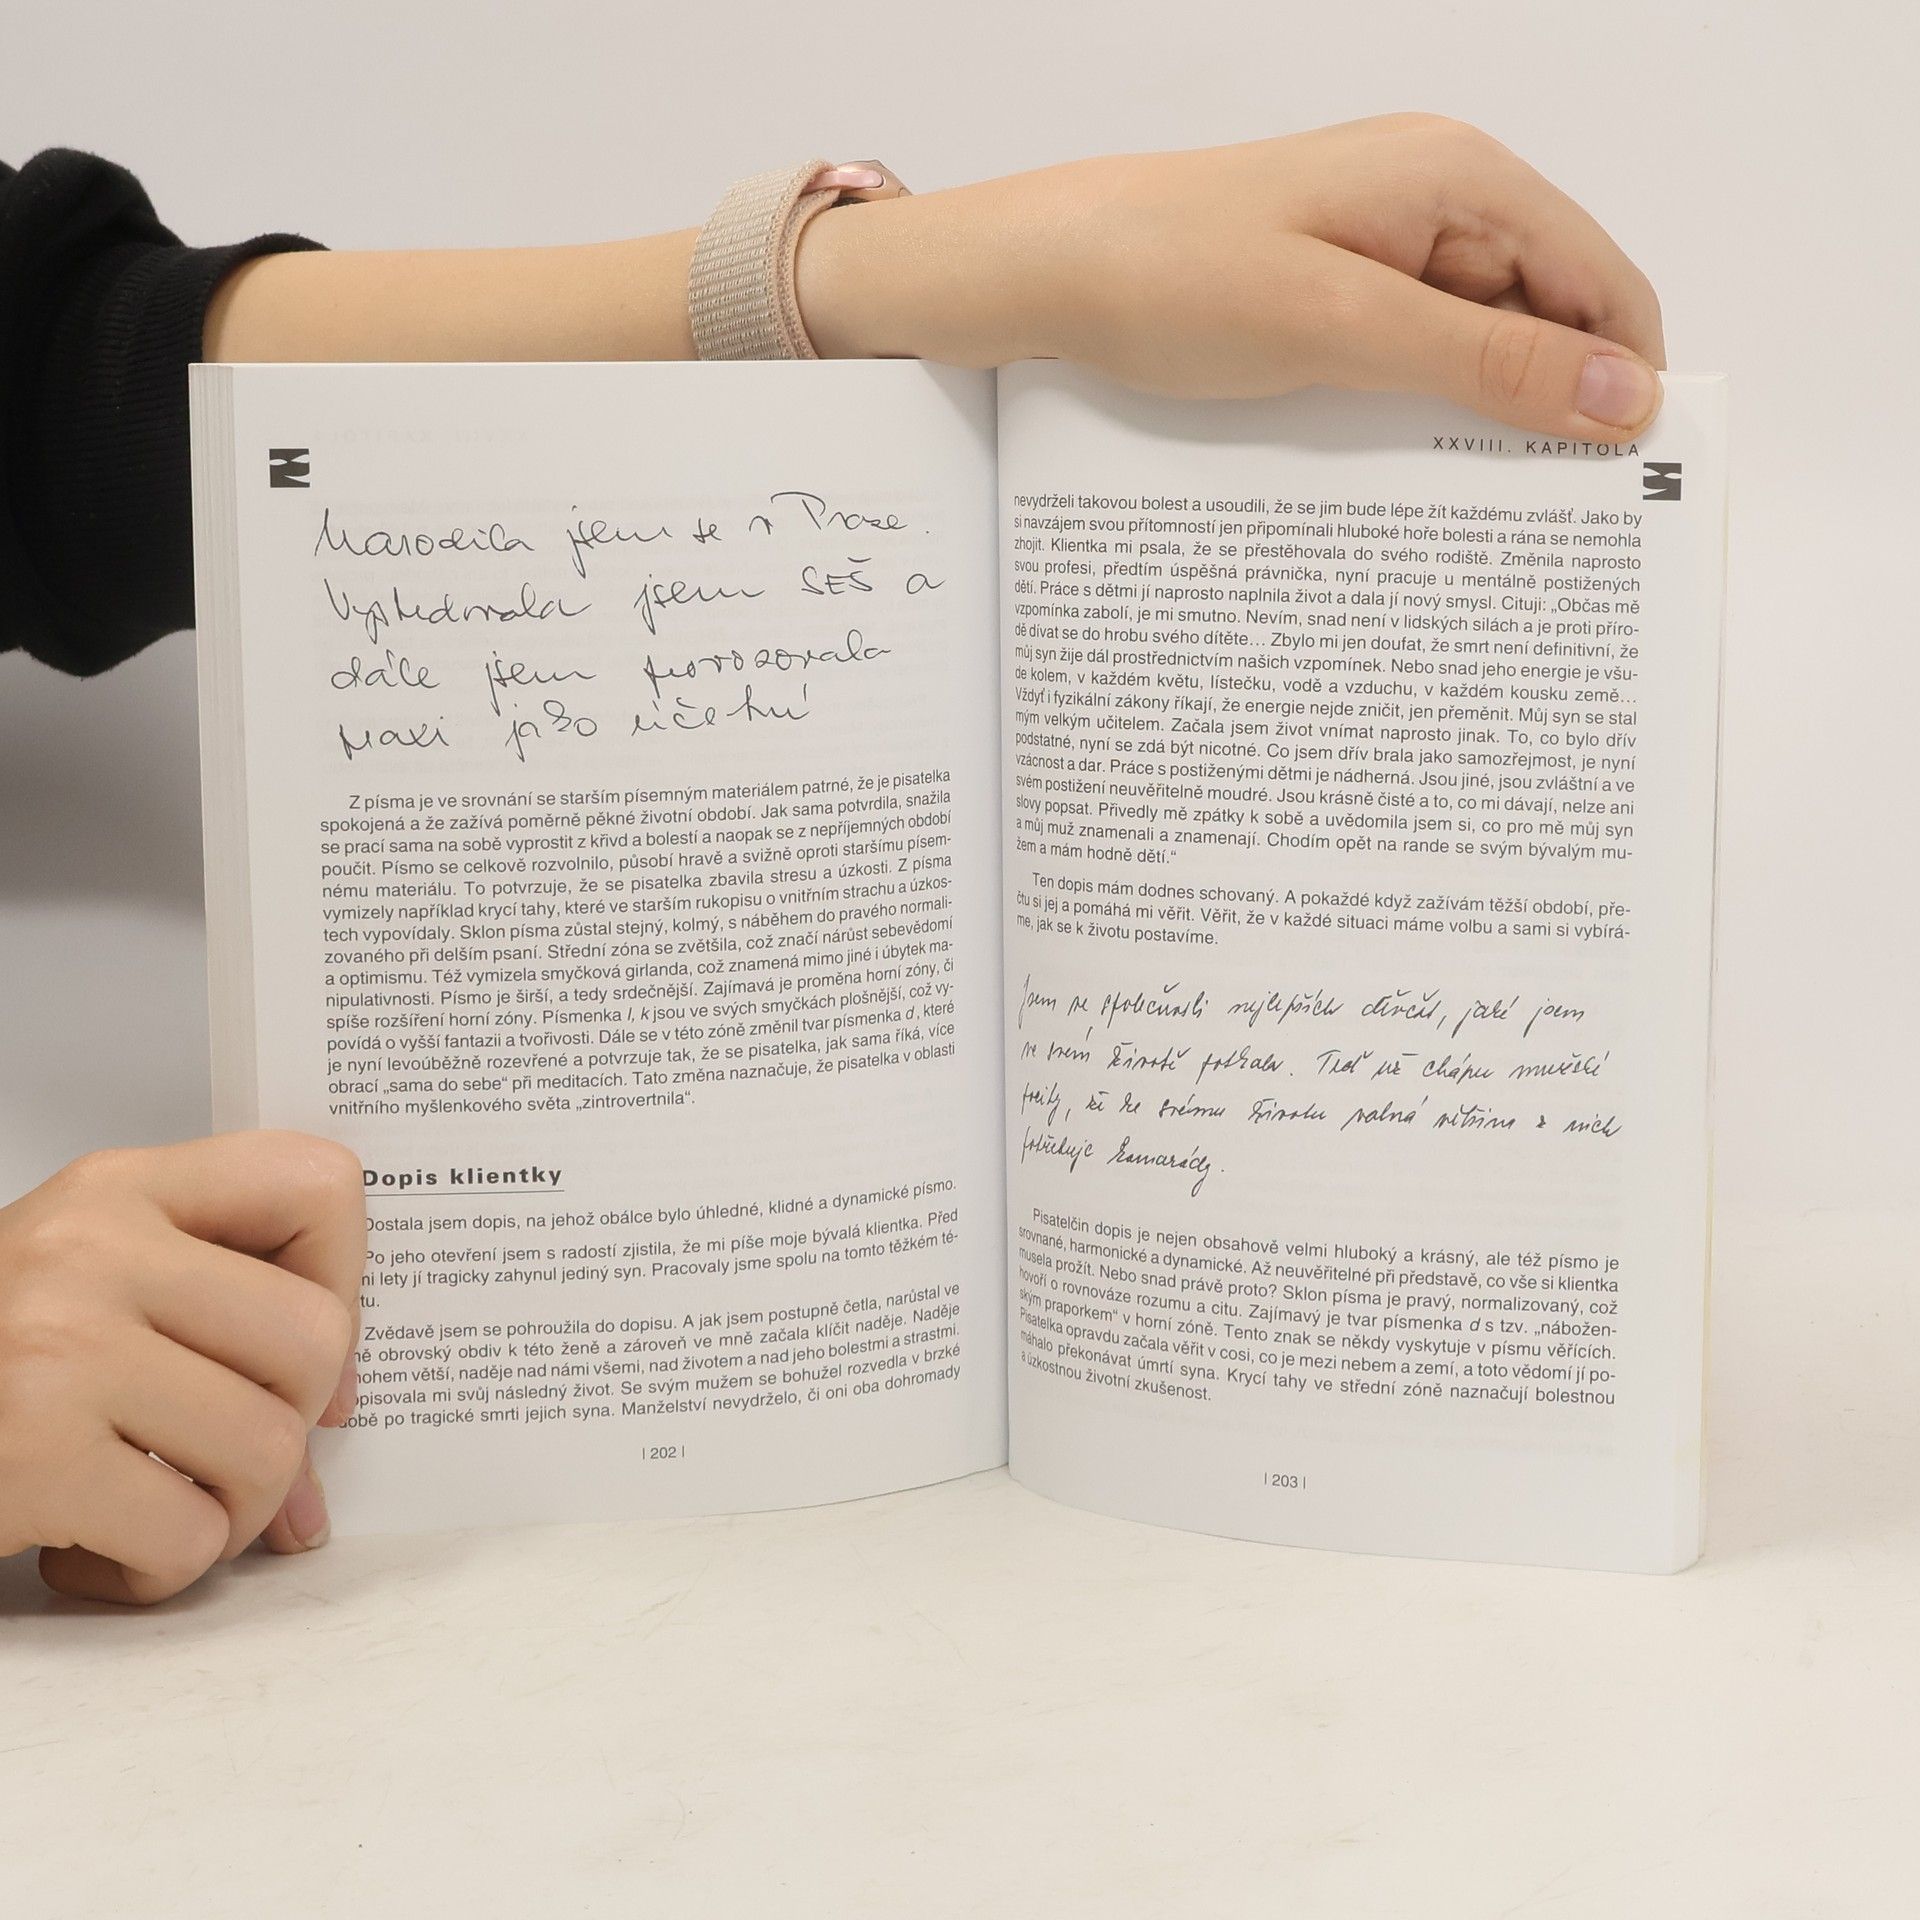 Narodila jsem se v Praze.
Vystudovala jsem SEŠ a
dále jsem provozovala
praxi jako účetní
Z písma je ve srovnání se starším písemným materiálem patrné, že je pisatelka
spokojená a že zažívá poměrně pěkné životní období. Jak sama potvrdila, snažila
se prací sama na sobě vyprostit z křivd a bolestí a naopak se z nepříjemných období
poučit. Písmo se celkově rozvolnilo, působí hravě a svižně oproti staršímu písem-
nému materiálu. To potvrzuje, že se pisatelka zbavila stresu a úzkosti. Z písma
vymizely například krycí tahy, které ve starším rukopisu o vnitřním strachu a úzkos-
tech vypovídaly. Sklon písma zůstal stejný, kolmý, s náběhem do pravého normali-
zovaného při delším psaní. Střední zóna se zvětšila, což značí nárůst sebevědomí
a optimismu. Též vymizela smyčková girlanda, což znamená mimo jiné i úbytek ma-
nipulativnosti. Písmo je širší, a tedy srdečnější. Zajímavá je proměna horní zóny, či
spíše rozšíření horní zóny. Písmenka l, k jsou ve svých smyčkách plošnější, což vy-
povídá o vyšší fantazii a tvořivosti. Dále se v této zóně změnil tvar písmenka d, které
je nyní levoúběžně rozevřené a potvrzuje tak, že se pisatelka, jak sama říká, více
obrací „sama do sebe“ při meditacích. Tato změna naznačuje, že pisatelka v oblasti
vnitřního myšlenkového světa „zintrovertnila“.
Dopis klientky
Dostala jsem dopis, na jehož obálce bylo úhledné, klidné a dynamické písmo.
Po jeho otevření jsem s radostí zjistila, že mi píše moje bývalá klientka. Před
lety jí tragicky zahynul jediný syn. Pracovaly jsme spolu na tomto těžkém té-
tu.
Zvědavě jsem se pohroužila do dopisu. A jak jsem postupně četla, narůstal ve
obrovský obdiv k této ženě a zároveň ve mně začala klíčit naděje. Naděje
mnohem větší, naděje nad námi všemi, nad životem a nad jeho bolestmi a strastmi.
opisovala mi svůj následný život. Se svým mužem se bohužel rozvedla v brzké
době po tragické smrti jejich syna. Manželství nevydrželo, či oni oba dohromady
| 202 |
XXVIII. KAPITOLA
nevydrželi takovou bolest a usoudili, že se jim bude lépe žít každému zvlášť. Jako by
si navzájem svou přítomností jen připomínali hluboké hoře bolesti a rána se nemohla
zhojit. Klientka mi psala, že se přestěhovala do svého rodiště. Změnila naprosto
svou profesi, předtím úspěšná právnička, nyní pracuje u mentálně postižených
dětí. Práce s dětmi jí naprosto naplnila život a dala jí nový smysl. Cituji: „Občas mě
vzpomínka zabolí, je mi smutno. Nevím, snad není v lidských silách a je proti příro-
dě dívat se do hrobu svého dítěte… Zbylo mi jen doufat, že smrt není definitivní, že
můj syn žije dál prostřednictvím našich vzpomínek. Nebo snad jeho energie je všu-
de kolem, v každém květu, lístečku, vodě a vzduchu, v každém kousku země…
Vždyť i fyzikální zákony říkají, že energie nejde zničit, jen přeměnit. Můj syn se stal
mým velkým učitelem. Začala jsem život vnímat naprosto jinak. To, co bylo dřív
podstatné, nyní se zdá být nicotné. Co jsem dřív brala jako samozřejmost, je nyní
vzácnost a dar. Práce s postiženými dětmi je nádherná. Jsou jiné, jsou zvláštní a ve
svém postižení neuvěřitelně moudré. Jsou krásně čisté a to, co mi dávají, nelze ani
slovy popsat. Přivedly mě zpátky k sobě a uvědomila jsem si, co pro mě můj syn
a můj muž znamenali a znamenají. Chodím opět na rande se svým bývalým mu-
žem a mám hodně dětí.“
Ten dopis mám dodnes schovaný. A pokaždé když zažívám těžší období, pře-
čtu si jej a pomáhá mi věřit. Věřit, že v každé situaci máme volbu a sami si vybírá-
me, jak se k životu postavíme.
Jsem ve společnosti nejlepších děvčat, jaké jsem
ve svém životě potkala. Teď už chápu mužské
že ke svému životu valná většina z nich
potřebuje kamarády.
Pisatelčin dopis je nejen obsahově velmi hluboký a krásný, ale též písmo je
srovnané, harmonické a dynamické. Až neuvěřitelné při představě, co vše si klientka
musela prožít. Nebo snad právě proto? Sklon písma je pravý, normalizovaný, což
hovoří o rovnováze rozumu a citu. Zajímavý je tvar písmenka d s tzv. „nábožen-
ským praporkem“ v horní zóně. Tento znak se někdy vyskytuje v písmu věřících.
Pisatelka opravdu začala věřit v cosi, co je mezi nebem a zemí, a toto vědomí jí po-
máhalo překonávat úmrtí syna. Krycí tahy ve střední zóně naznačují bolestnou
a úzkostnou životní zkušenost.
| 203 |